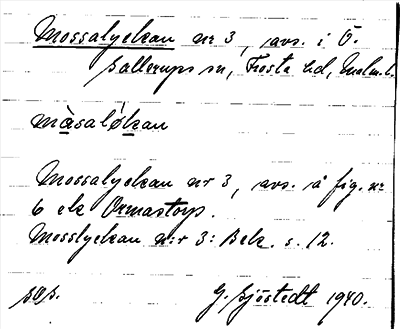 Mossalyckan nr 3, avs. i Ö.
Sallerups sn, Frosta hd, Malm. l.
màsaløkan
Mossalyckan nr 3, avs. å fig. nr
6 ek Ormastorp.
Mosslyckan n:r 3: Besk. s. 12.
G. Sjöstedt 1940.